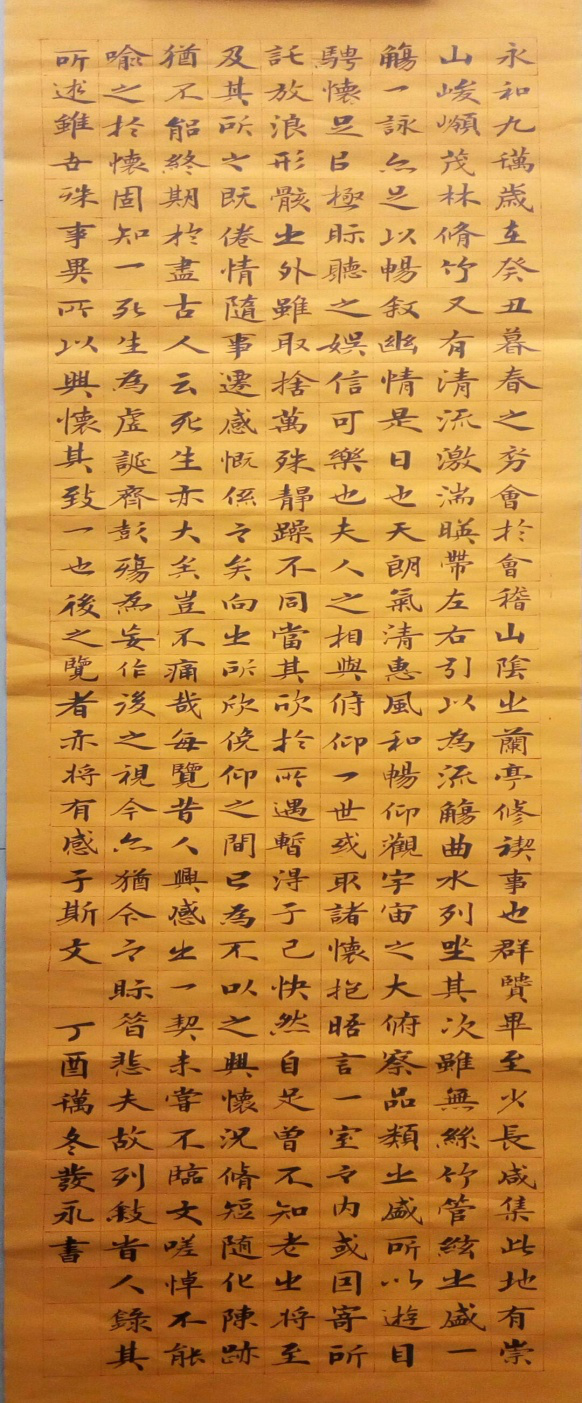 永和九禩歲在癸丑暮春之初會於會稽山陰之蘭亭修禊事也群賢畢至少長咸集此地有崇
山峻嶺茂林脩竹又有清流激湍暎帶左右引以為流觴曲水列坐其次雖無絲竹管絃之盛一
觴一詠亦足以暢敘幽情是日也天朗氣清惠風和暢仰觀宇宙之大俯察品類之盛所以遊目
騁懷足以極眎聽之娛信可樂也夫人之相與俯仰一世或取諸懷抱晤言一室之內或因寄所
託放浪形骸之外雖取捨萬殊靜躁不同當其欣於所遇暫得于己快然自足曾不知老之將至
及其所之既倦情隨事遷感慨係之矣向之所欣俛仰之間已為不以之興懷況脩短隨化陳跡
猶不能終期於盡古人云死生亦大矣豈不痛哉每覽昔人興感之一契未嘗不臨文嗟悼不能
喻之於懷固知一死生為虛誕齊彭殤為妄作後之視今亦猶今之眎昔悲夫故列敘昔人錄其
所述雖世殊事異所以興懷其致一也後之覽者亦將有感于斯文 丁酉禩冬發永書